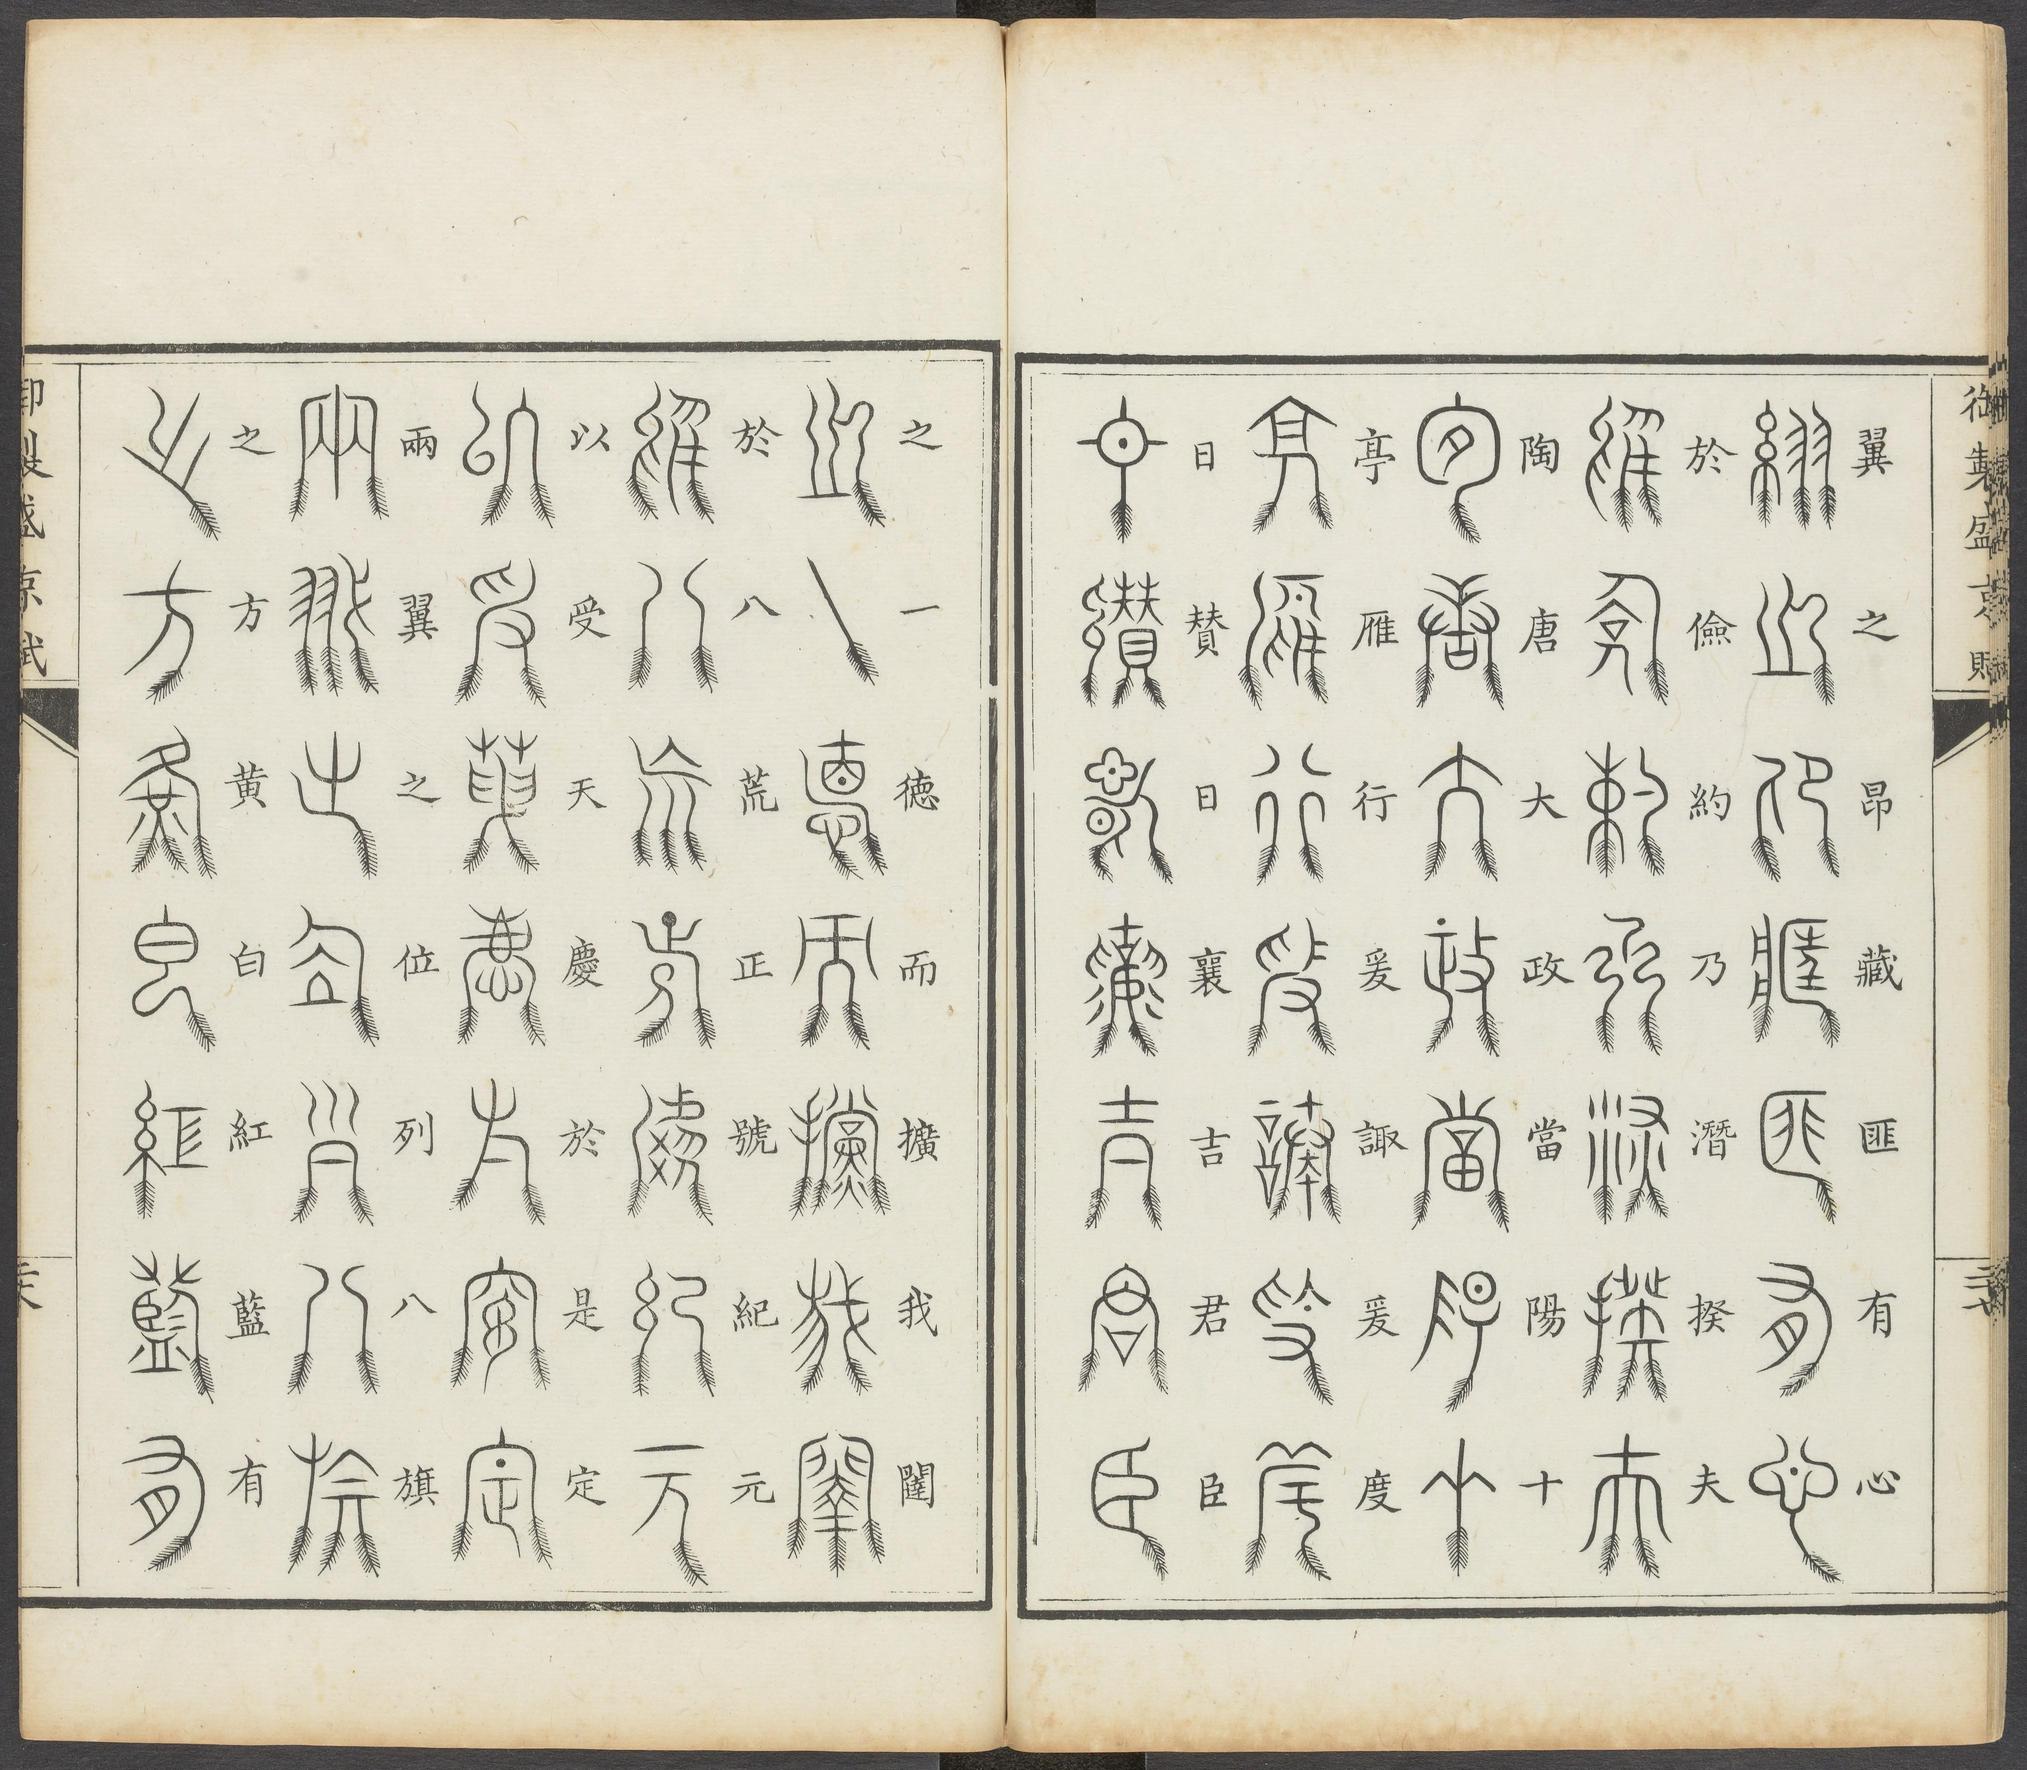 御製盛京賦
翼之昂藏匪有心
於儉約乃潛揆夫
陶唐大政當陽十
亭雁行爰諏爰度
日贊日襄吉君臣
之一德而擴我闥
於八荒正號紀元
以受天慶於是定
兩翼之位列八旗
之方黃白紅藍有
御製盛京賦